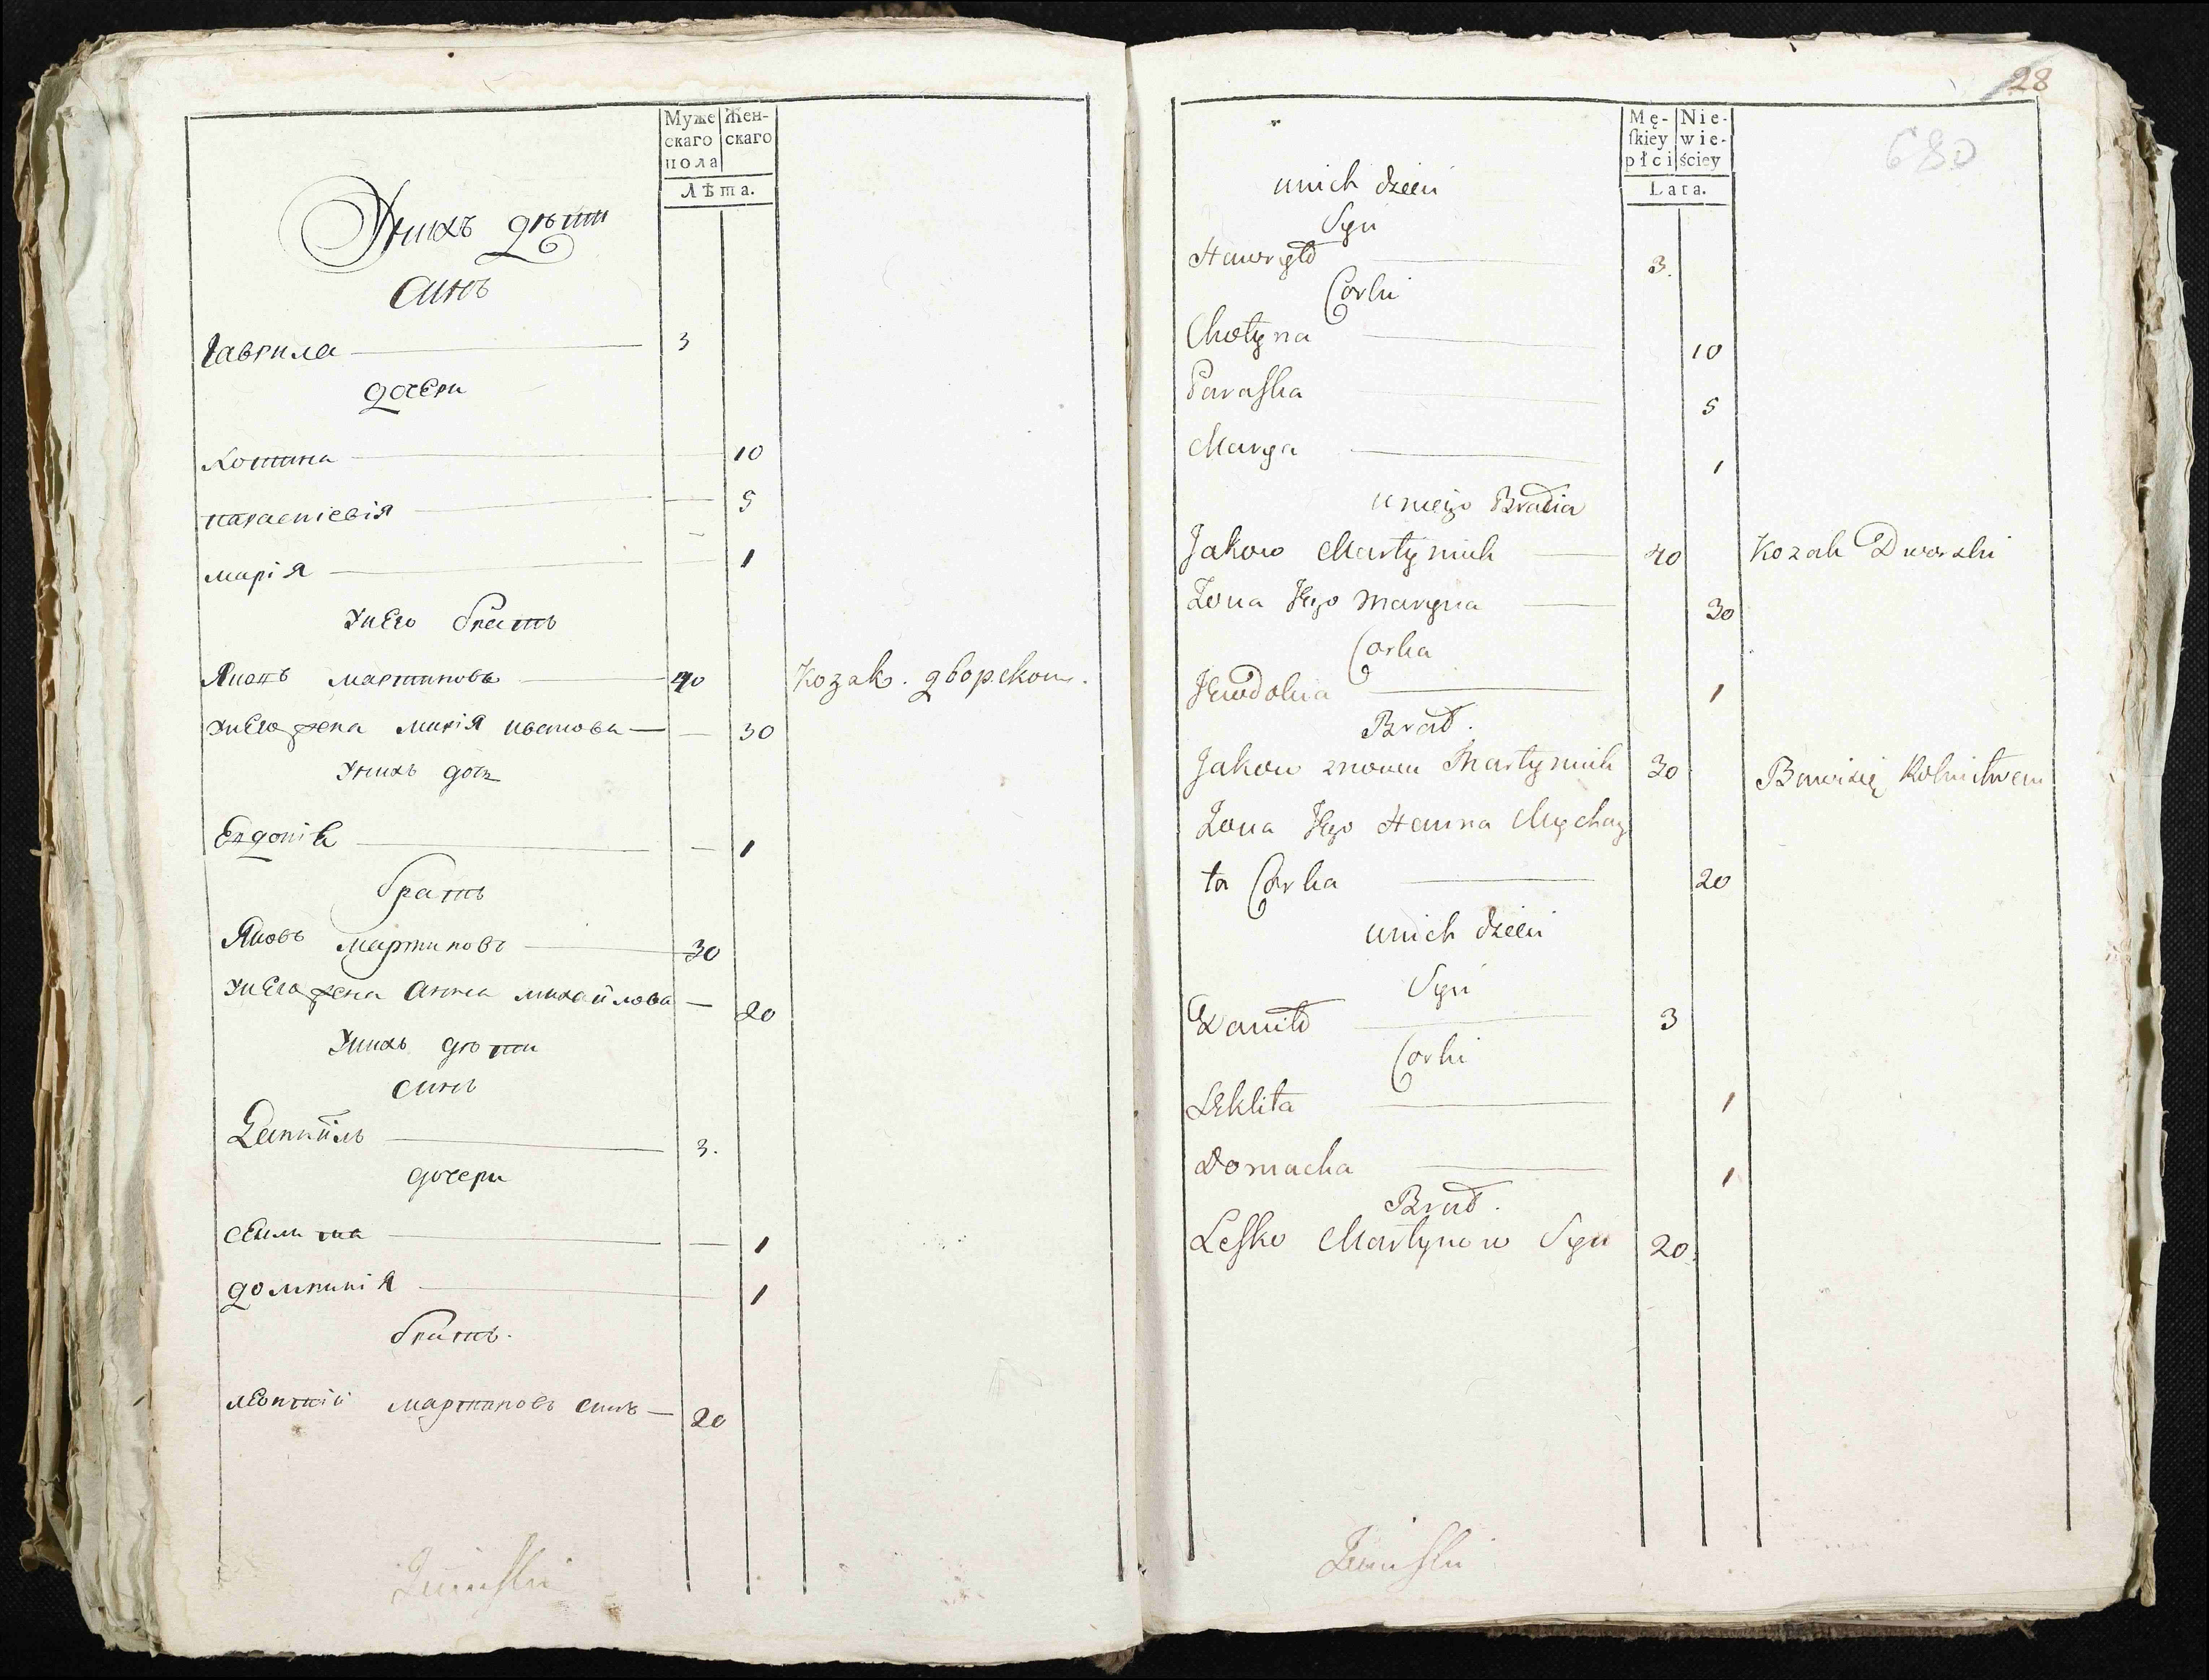 Муже скаго пола
Жен-скаго
Лѣта.
Унихъ дѣти
Синъ
Гаврила 3
дочери
Хотина 10
параскіевія 5
марія 1
Унего братъ
Яковъ мартиновъ 40 Kozak. дворской.
Унего жена марія иванова 30
Унихъ дочь
Евдокія 1
братъ
Яковъ мартиновъ 30
Унего жена анна михайлова 20
Унихъ дѣти
синъ
Даніилъ 3.
дочери
1
домникія 1
братъ.
леонтій мартиновъ синъ 20
28
680
Mę-ſkiey płci
Nie-wie-ściey
Lata.
unich dzieci
Syn
Hawryło 3.
Corki
Chotyna 10
Paraſka 5
Marya 1
uniego Bracia
Jakow Martyniuk 40 Kozak Dworski
Żona Jego Maryna 30
Corka
Jewdokia 1
Brat.
Jakow znowu Martyniuk 30 Bawisię Rolnictwem
Żona Jego Hanna Mychay
ła Corka 20
unich dzieci
Syn
Daniło 3
Corki
Seklita 1
Domacha 1
Brat.
Leſko Martynow Syn 20.